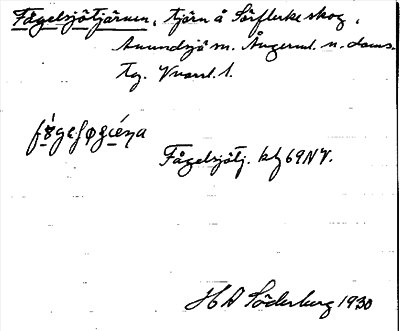 Fågelsjötjärnen, tjärn å Sörflerke skog,
Anundsjö sn. Ångerml. n. doms.
tg. Vvarul. 1.
Fågelsjötj. kbl 69 NV.
H A Söderberg 1930